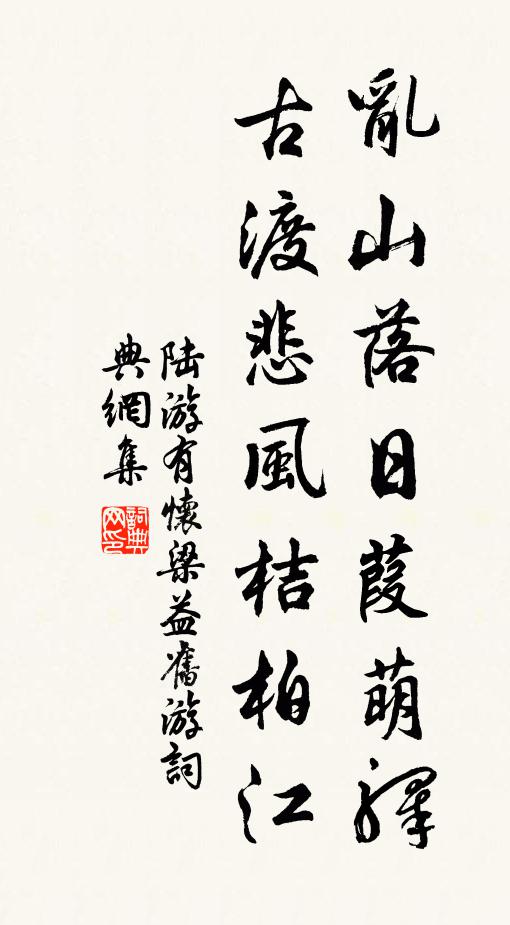 亂山落日葭萌驛
古渡悲風桔柏江
陆游有懷梁益舊游詞
典網集
詞典
网印